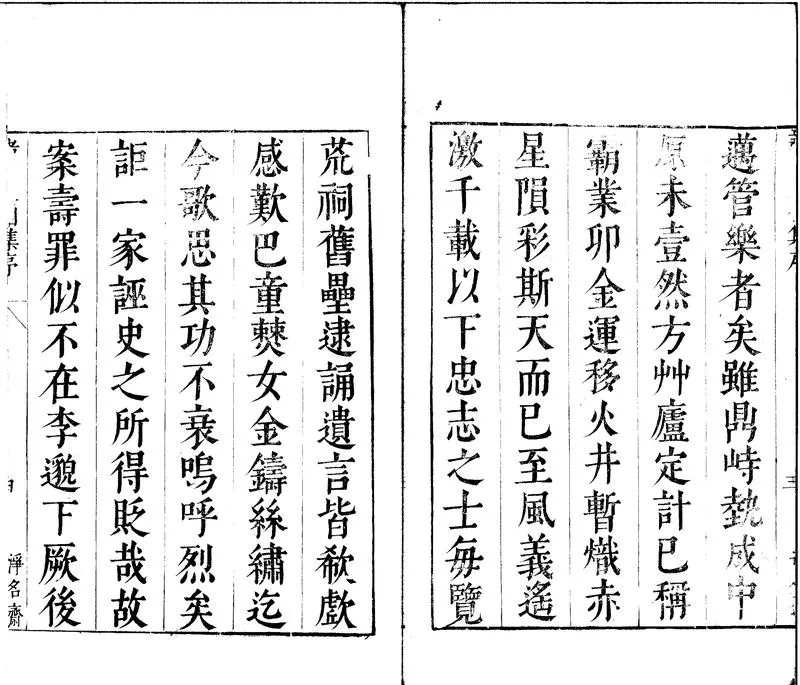 邁管樂者矣雖鼎峙埶成中
原未壹然方艸廬定計已稱
霸業卯金運移火井暫熾赤
星隕彩斯天而已至風義遙
激千載以下忠志之士每覽
荒祠舊壘逮誦遺言皆欷歔
感歎巴童僰女金鑄絲繡迄
今歌思其功不衰嗚呼烈矣
詎一家誣史之所得貶哉故
案壽罪似不在李邈下厥後
集序
淨名齋